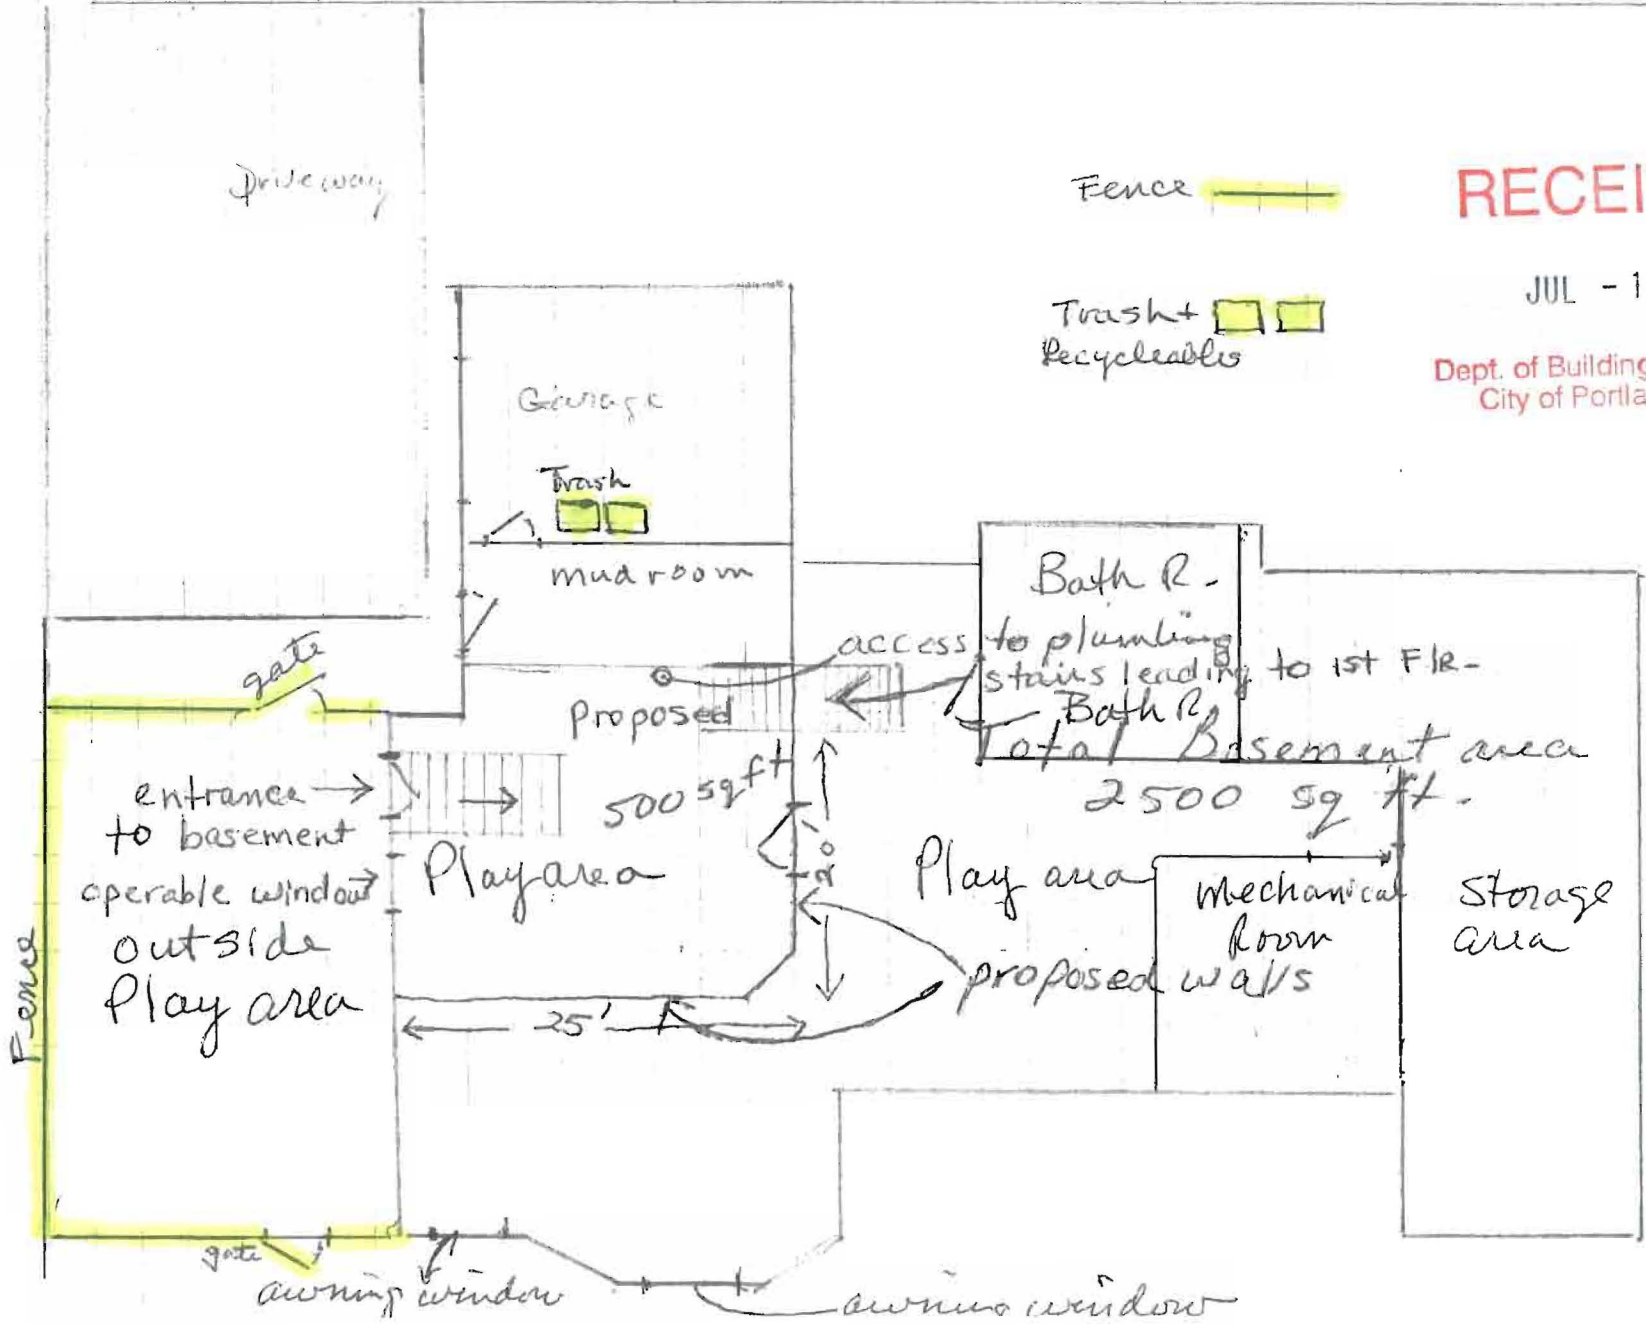 Driveway
Fence
RECEI
JUL - 1
Trash +
Recycleables
Dept. of Building
City of Portla
Garage
Trash
mudroom
Bath R.
gate
access to plumbing
stairs leading to 1st Flr.
proposed
Bath R.
Total Basement area
2500 sq ft.
500 sq ft
entrance
to basement
20
operable window
Play area
Play area
Mechanical
Room
Storage
area
outside
Play area
Fence
proposed walls
25'
gate
awning window
awning window